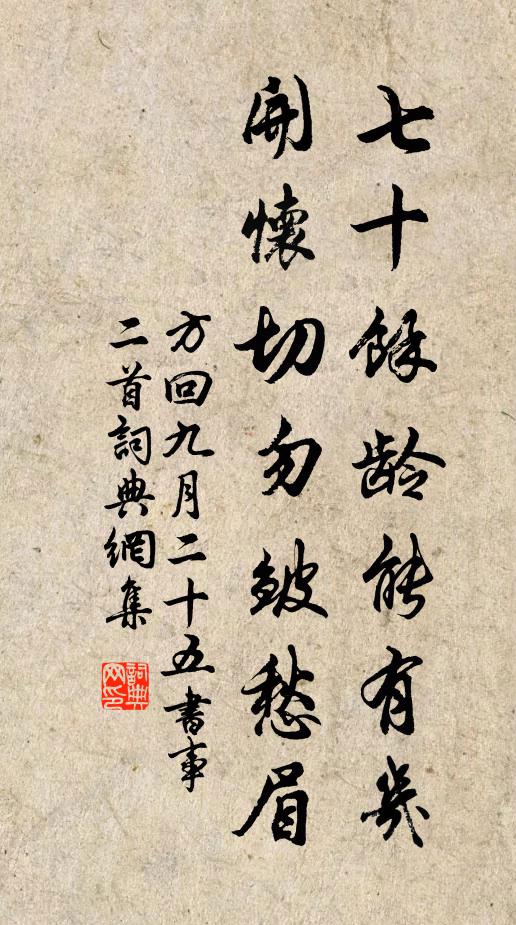 七十餘齡能有幾
開懷切勿皴愁眉
方回九月二十五書事
二首詞典網集
詞典網印